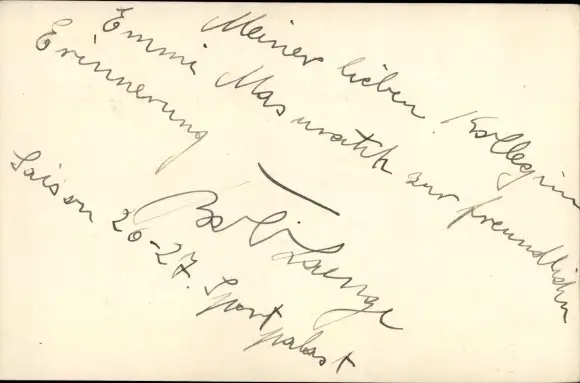 Meiner lieben Kollegin
Emmi Masuratih zur freundlichen
Erinnerung
Laenge
Saison 26-27. Sport
palast